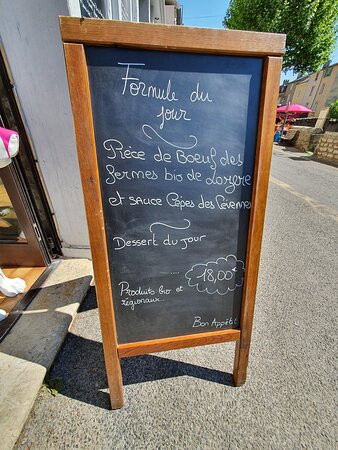 Formule du
jour
Pièce de Boeuf des
fermes bio de Lozère
et sauce Cèpes des Cévennes
Dessert du jour
18,00€
Produits bio et
régionaux
Bon Appétit